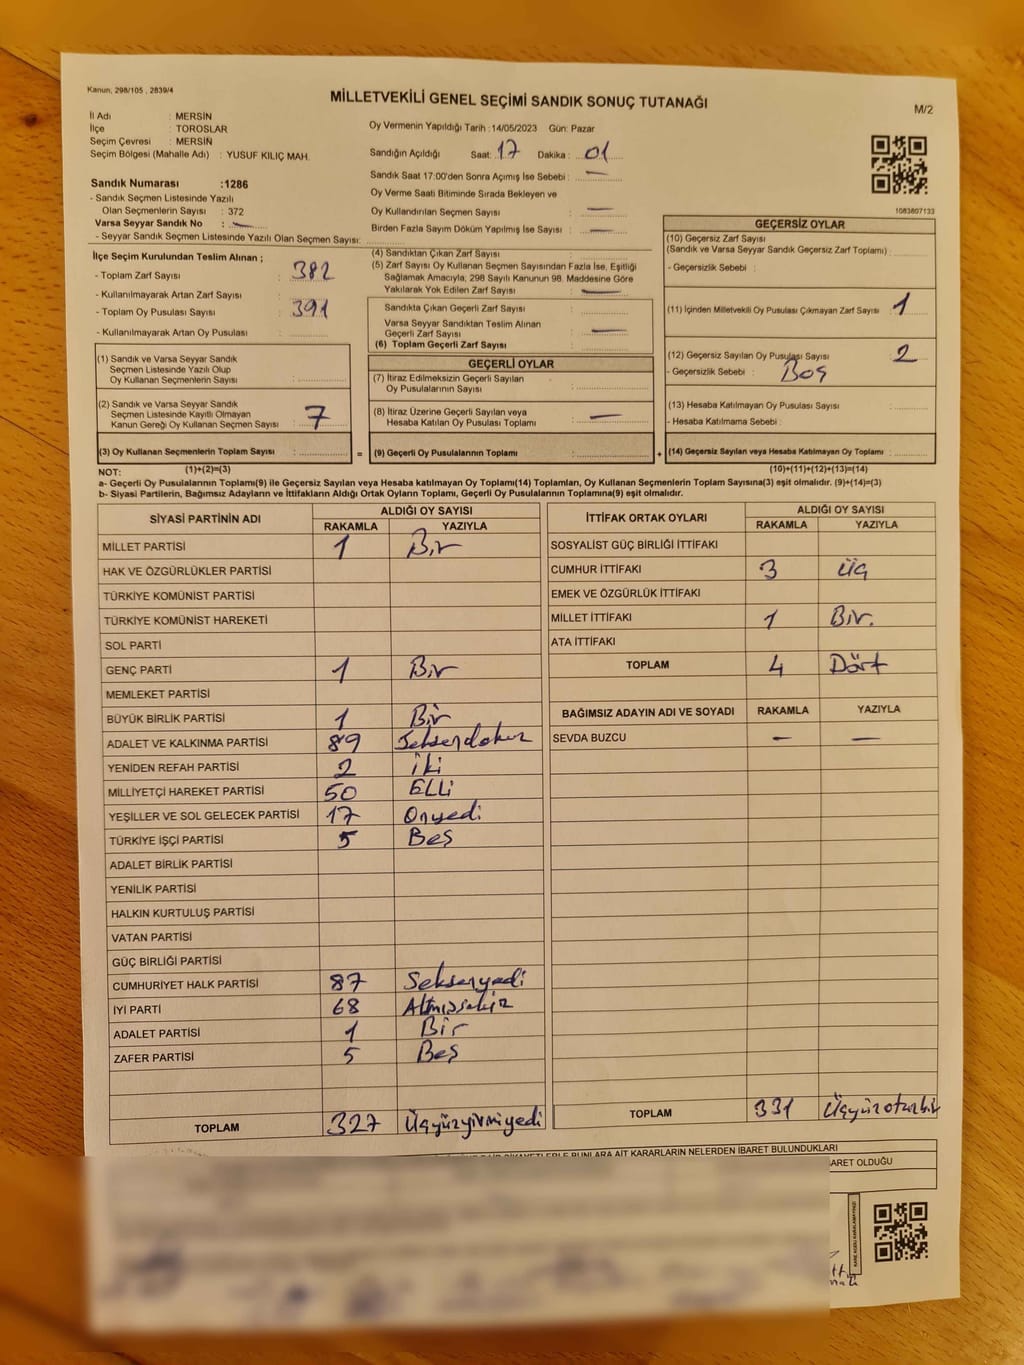 Kanun, 298/105 , 2839/4
MİLLETVEKİLİ GENEL SEÇİMİ SANDIK SONUÇ TUTANAĞI
M/2
İl Adı : MERSİN
İlçe : TOROSLAR
Seçim Çevresi : MERSİN
Seçim Bölgesi (Mahalle Adı) : YUSUF KILIÇ MAH.
Sandık Numarası :1286
- Sandık Seçmen Listesinde Yazılı
Olan Seçmenlerin Sayısı : 372
Varsa Seyyar Sandık No : —
- Seyyar Sandık Seçmen Listesinde Yazılı Olan Seçmen Sayısı:
Oy Vermenin Yapıldığı Tarih :14/05/2023 Gün: Pazar
Sandığın Açıldığı Saat: 17 Dakika : 01
Sandık Saat 17:00'den Sonra Açımış İse Sebebi : —
Oy Verme Saati Bitiminde Sırada Bekleyen ve
Oy Kullandırılan Seçmen Sayısı : —
Birden Fazla Sayım Döküm Yapılmış İse Sayısı : —
1083807133
İlçe Seçim Kurulundan Teslim Alınan ;
- Toplam Zarf Sayısı : 382
- Kullanılmayarak Artan Zarf Sayısı :
- Toplam Oy Pusulası Sayısı : 391
- Kullanılmayarak Artan Oy Pusulası :
(1) Sandık ve Varsa Seyyar Sandık
Seçmen Listesinde Yazılı Olup
Oy Kullanan Seçmenlerin Sayısı :
(2) Sandık ve Varsa Seyyar Sandık
Seçmen Listesinde Kayıtlı Olmayan
Kanun Gereği Oy Kullanan Seçmen Sayısı : 7
(3) Oy Kullanan Seçmenlerin Toplam Sayısı : =
(4) Sandıktan Çıkan Zarf Sayısı :
(5) Zarf Sayısı Oy Kullanan Seçmen Sayısından Fazla İse, Eşitliği
Sağlamak Amacıyla, 298 Sayılı Kanunun 98. Maddesine Göre
Yakılarak Yok Edilen Zarf Sayısı : —
Sandıkta Çıkan Geçerli Zarf Sayısı :
Varsa Seyyar Sandıktan Teslim Alınan
Geçerli Zarf Sayısı : —
(6) Toplam Geçerli Zarf Sayısı :
GEÇERLİ OYLAR
(7) İtiraz Edilmeksizin Geçerli Sayılan
Oy Pusulalarının Sayısı :
(8) İtiraz Üzerine Geçerli Sayılan veya
Hesaba Katılan Oy Pusulası Toplamı : —
(9) Geçerli Oy Pusulalarının Toplamı : +
GEÇERSİZ OYLAR
(10) Geçersiz Zarf Sayısı
(Sandık ve Varsa Seyyar Sandık Geçersiz Zarf Toplamı) :
- Geçersizlik Sebebi :
(11) İçinden Milletvekili Oy Pusulası Çıkmayan Zarf Sayısı : 1
(12) Geçersiz Sayılan Oy Pusulası Sayısı : 2
- Geçersizlik Sebebi : Boş
(13) Hesaba Katılmayan Oy Pusulası Sayısı :
- Hesaba Katılmama Sebebi :
(14) Geçersiz Sayılan veya Hesaba Katılmayan Oy Toplamı :
NOT: (1)+(2)=(3) (10)+(11)+(12)+(13)=(14)
a- Geçerli Oy Pusulalarının Toplamı(9) ile Geçersiz Sayılan veya Hesaba katılmayan Oy Toplamı(14) Toplamları, Oy Kullanan Seçmenlerin Toplam Sayısına(3) eşit olmalıdır. (9)+(14)=(3)
b- Siyasi Partilerin, Bağımsız Adayların ve İttifakların Aldığı Ortak Oyların Toplamı, Geçerli Oy Pusulalarının Toplamına(9) eşit olmalıdır.
SİYASİ PARTİNİN ADI ALDIĞI OY SAYISI
RAKAMLA YAZIYLA
MİLLET PARTİSİ 1 Bir
HAK VE ÖZGÜRLÜKLER PARTİSİ
TÜRKİYE KOMÜNİST PARTİSİ
TÜRKİYE KOMÜNİST HAREKETİ
SOL PARTİ
GENÇ PARTİ 1 Bir
MEMLEKET PARTİSİ
BÜYÜK BİRLİK PARTİSİ 1 Bir
ADALET VE KALKINMA PARTİSİ 89 Seksendokuz
YENİDEN REFAH PARTİSİ 2 iki
MİLLİYETÇİ HAREKET PARTİSİ 50 ELLİ
YEŞİLLER VE SOL GELECEK PARTİSİ 17 Onyedi
TÜRKİYE İŞÇİ PARTİSİ 5 Beş
ADALET BİRLİK PARTİSİ
YENİLİK PARTİSİ
HALKIN KURTULUŞ PARTİSİ
VATAN PARTİSİ
GÜÇ BİRLİĞİ PARTİSİ
CUMHURİYET HALK PARTİSİ 87 Seksenyedi
İYİ PARTİ 68 Altmışsekiz
ADALET PARTİSİ 1 Bir
ZAFER PARTİSİ 5 Beş
TOPLAM 327 Üçyüzyirmiyedi
İTTİFAK ORTAK OYLARI ALDIĞI OY SAYISI
RAKAMLA YAZIYLA
SOSYALİST GÜÇ BİRLİĞİ İTTİFAKI
CUMHUR İTTİFAKI 3 üç
EMEK VE ÖZGÜRLÜK İTTİFAKI
MİLLET İTTİFAKI 1 Bir.
ATA İTTİFAKI
TOPLAM 4 Dört
BAĞIMSIZ ADAYIN ADI VE SOYADI RAKAMLA YAZIYLA
SEVDA BUZCU — —
TOPLAM 331 Üçyüzotuzbir
BUNLARA AİT KARARLARIN NELERDEN İBARET BULUNDUKLARI
OLDUĞU